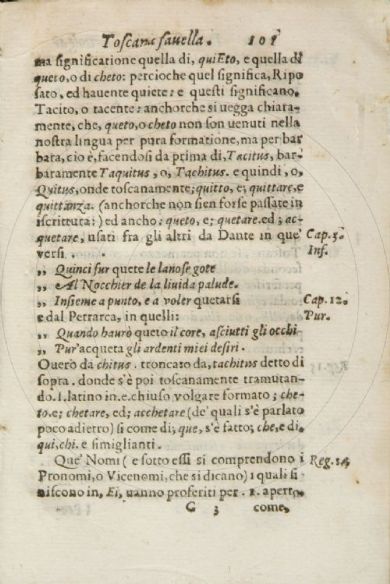 Toscana fauella. 101
ma significatione quella di, quiEto, e quella di
queto, o di cheto: percioche quel significa, Ripo
sato, ed hauente quiete: e questi significano.
Tacito, o tacente: anchorche si uegga chiara-
mente, che, queto, o cheto non son uenuti nella
nostra lingua per pura formatione, ma per bar
bata, cio è, facendosi da prima di, Tacitus, bar-
baramente Taquitus, o, Tachitus. e quindi, o,
Quitus, onde toscanamente; quitto, e; quittare, e
quittanza. (anchorche non sien forse passate in
iscrittura:) ed ancho; queto, e; quetare. ed; ac-
quetare, usati fra gli altri da Dante in que' Cap. 3.
versi. Inf.
„ Quinci fur quete le lanose gote
„ Al Nocchier de la liuida palude.
„ Insieme a punto, e a voler quetarsi Cap. 12.
e dal Petrarca, in quelli: Pur.
„ Quando haurò queto il core, asciutti gli occhi
„ Pur' acqueta gli ardenti miei desiri.
Ouerò da chitus. troncato da, tachitus detto di
sopra. donde s'è poi toscanamente tramutan-
do. I. latino in. e. chiuso volgare formato; che-
to. e; chetare, ed; acchetare (de' quali s'è parlato
poco adietro) si come di; que, s'è fatto; che, e di,
qui, chi. e simiglianti.
Que' Nomi (e sotto essi si comprendono i Reg. 14.
Pronomi, o Vicenomi, che si dicano) i quali fi
niscono in, Ei, uanno proferiti per. E. aperto.
G 3 come,